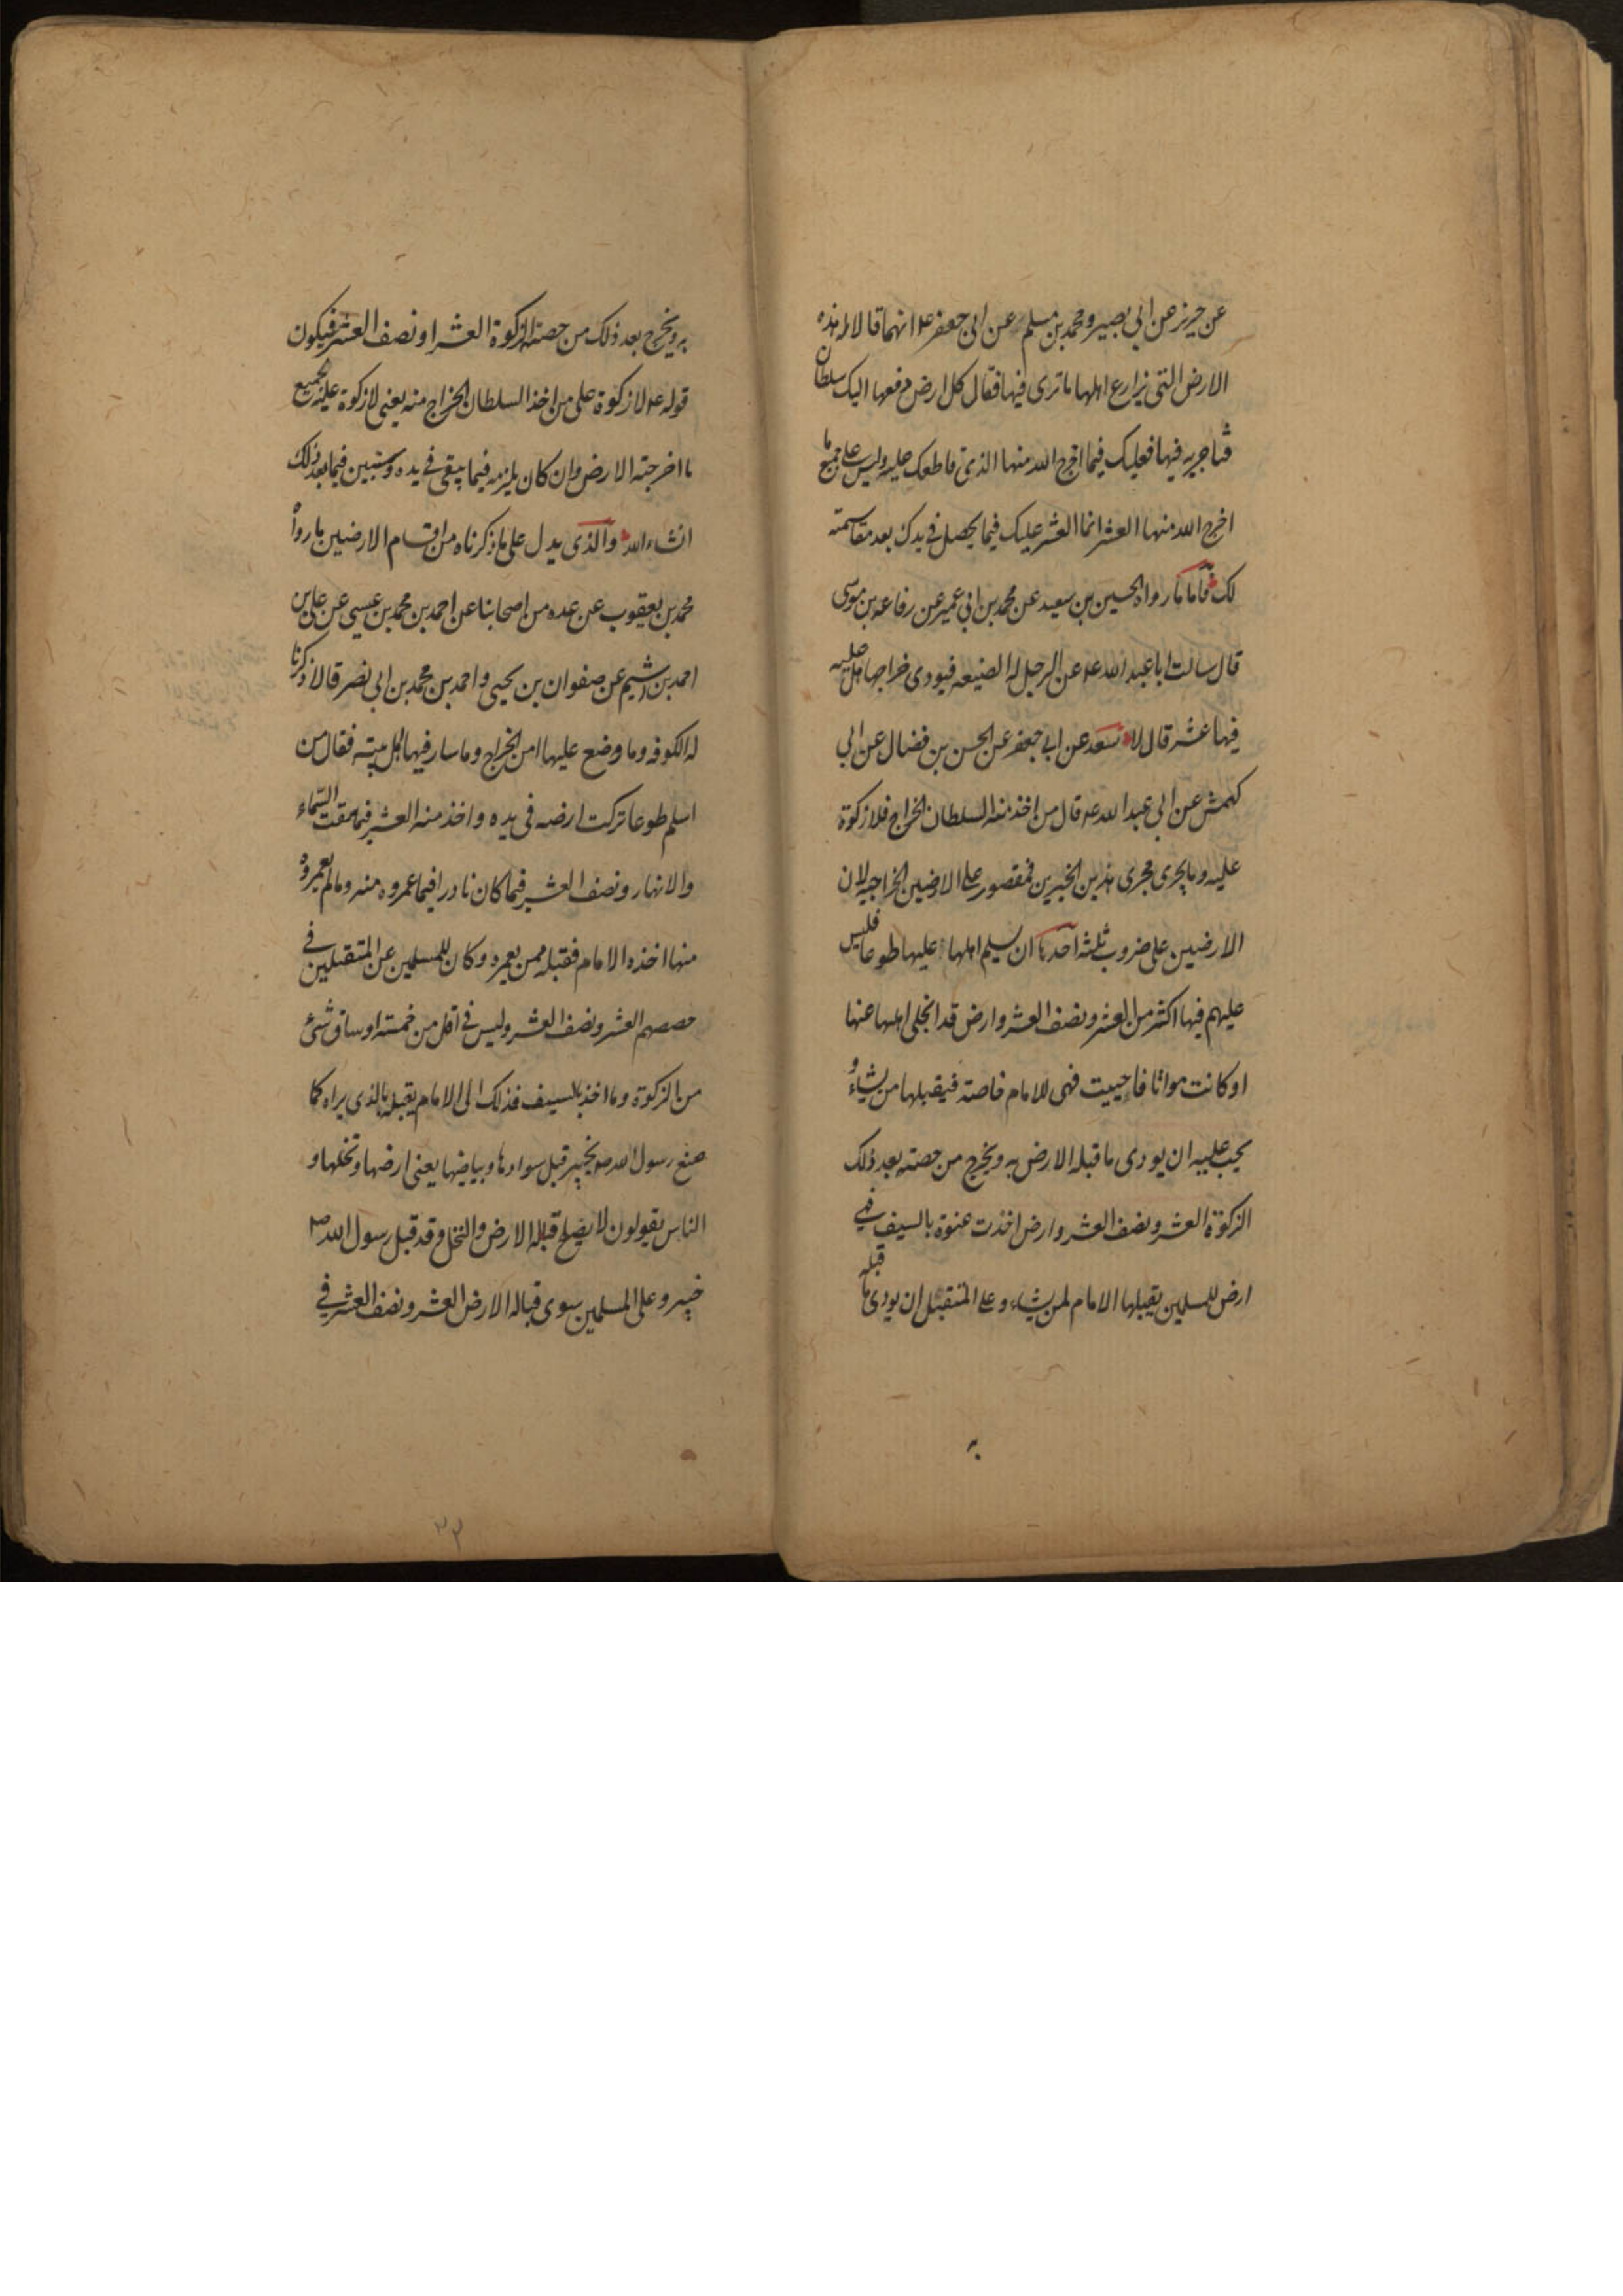 عن حريز عن ابي بصير ومحمد بن مسلم عن ابي جعفر ع انهما قالا له هذه
الارض التي يزارع اهلها ما ترى فيها فقال كل ارض دفعها اليك سلطان
فتاجريه فيها فعليك فيما اخرج الله منها الذي قاطعك عليه وليس على جميع ما
اخرج الله منها العشر انما العشر عليك فيما يحصل في يدك بعد مقاسمته
لك فاما ما رواه الحسين بن سعيد عن محمد بن ابي عمير عن رفاعه بن موسى
قال سالت ابا عبد الله ع عن الرجل له الضيعه فيودى خراجها هل عليه
فيها عشر قال لا سعد عن ابي جعفر عن الحسن بن فضال عن ابي
كهمش عن ابي عبد الله ع قال من اخذ منه السلطان الخراج فلا زكوة
عليه وما يجرى مجرى هذين الخبرين فمقصور على الارضين الخراجيه لان
الارضين على ضروب ثلثه احدها ان يسلم اهلها عليها طوعا فليس
عليهم فيها اكثر من العشر ونصف العشر وارض قد انجلى اهلها عنها
او كانت مواتا فاحييت فهي للامام خاصة فيقبلها من يشاء و
يجب عليه ان يودى ما قبله الارض به ويخرج من حصته بعد ذلك
الزكوة العشر ونصف العشر وارض اخذت عنوة بالسيف فهي
ارض للمسلمين يقبلها الامام لمن يشاء وعلى المتقبل ان يودى ما قبله
به
به ويخرج بعد ذلك من حصته الزكوة العشر او نصف العشر فيكون
قوله ع لا زكوة على من اخذ السلطان الخراج منه يعنى لا زكوة عليه لجميع
ما اخرجته الارض وان كان يلزمه فيما يبقى في يده وسنبين فيما بعد ذلك
انشاء الله والذى يدل على ما ذكرناه من اقسام الارضين ما رواه
محمد بن يعقوب عن عده من اصحابنا عن احمد بن محمد بن عيسى عن على بن
احمد بن اشيم عن صفوان بن يحيى واحمد بن محمد بن ابي نصر قالا ذكرنا
له الكوفه وما وضع عليها من الخراج وما سار فيها اهل بيته فقال من
اسلم طوعا تركت ارضه في يده واخذ منه العشر فيما سقت السماء
والانهار ونصف العشر فيما كان نادرا فيما عمروه منه وما لم يعمروه
منها اخذه الامام فقبله ممن يعمره وكان للمسلمين عن المتقبلين في
حصصهم العشر ونصف العشر وليس في اقل من خمسة اوساق شئ
من الزكوة وما اخذ بالسيف فذلك الى الامام يقبله بالذى يراه كما
صنع رسول الله ص بخيبر قبل سوادها وبياضها يعنى ارضها ونخلها و
الناس يقولون لا يصلح قباله الارض والنخل وقد قبل رسول الله ص
خيبر وعلى المسلمين سوى قباله الارض العشر ونصف العشر في